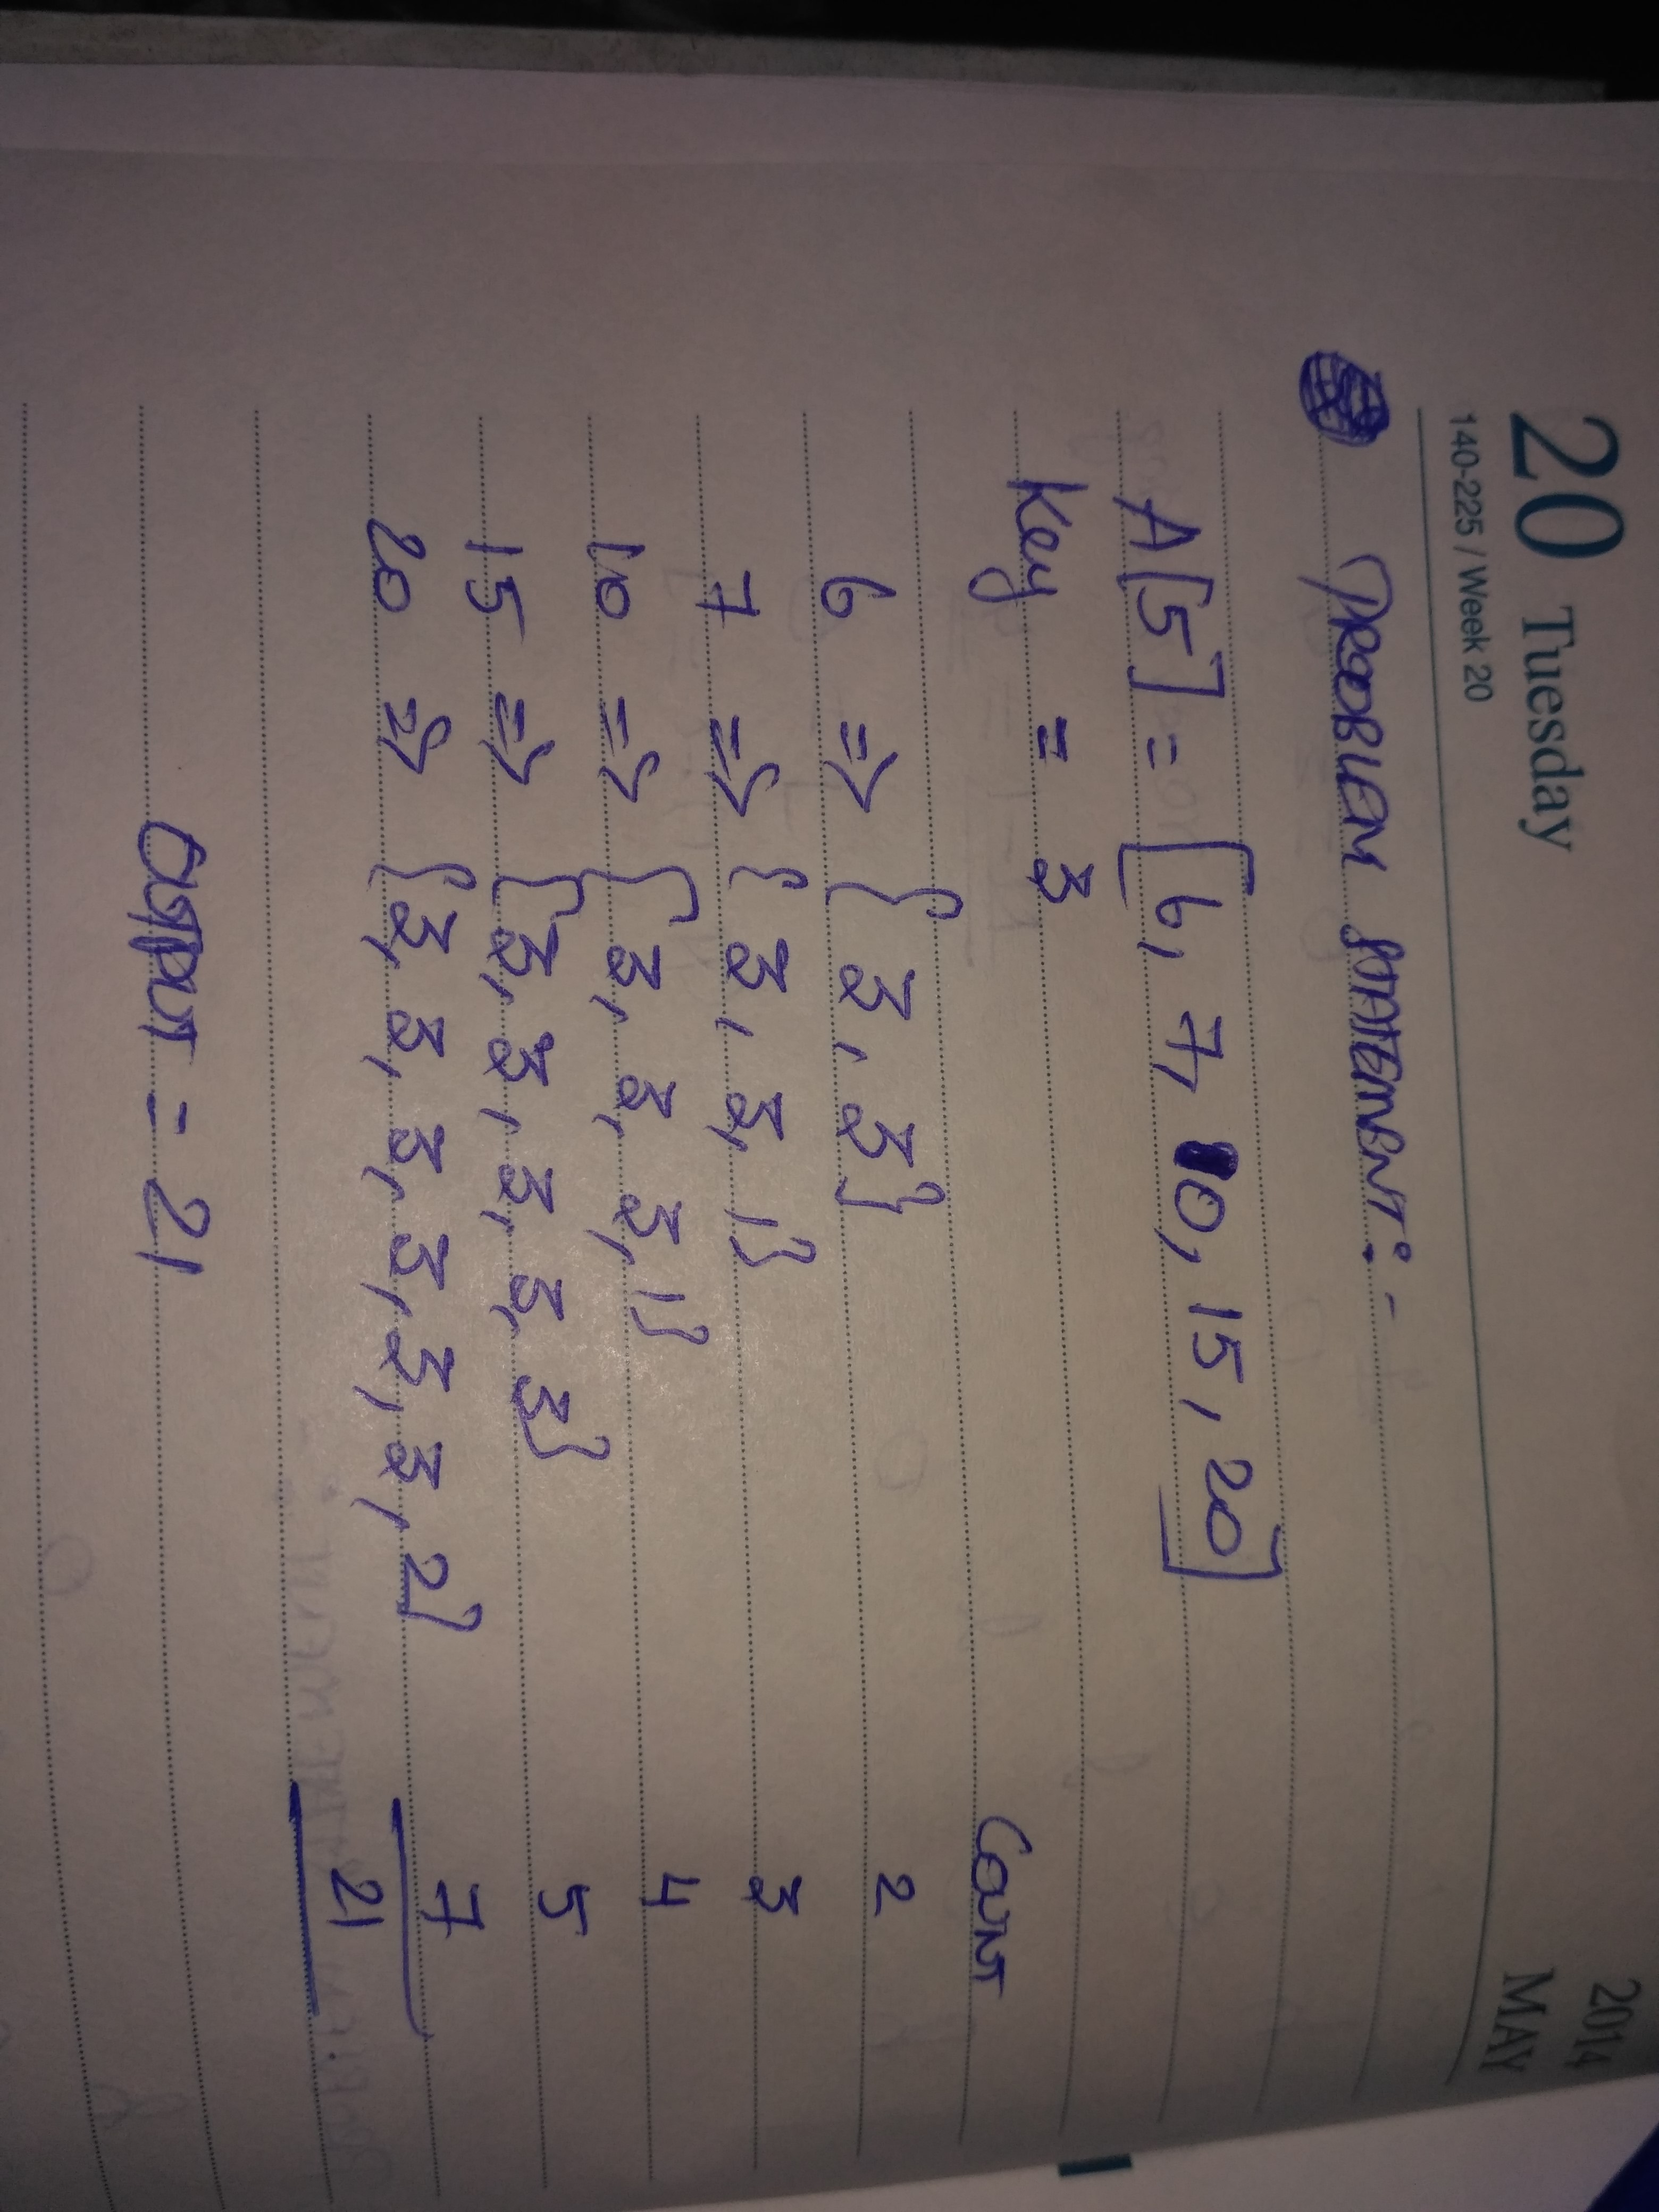 20 Tuesday
2014
MAY
140-225 / Week 20
PROOBLEM STATEMENT:-
A[5] = [6, 7, 10, 15, 20]
Key = 3
Count
6 => {3, 3} 2
7 => {3, 3, 1} 3
10 => {3, 3, 3, 1} 4
15 => {3, 3, 3, 3, 3} 5
20 => {3, 3, 3, 3, 3, 3, 2} 7
21
OUTPUT = 21